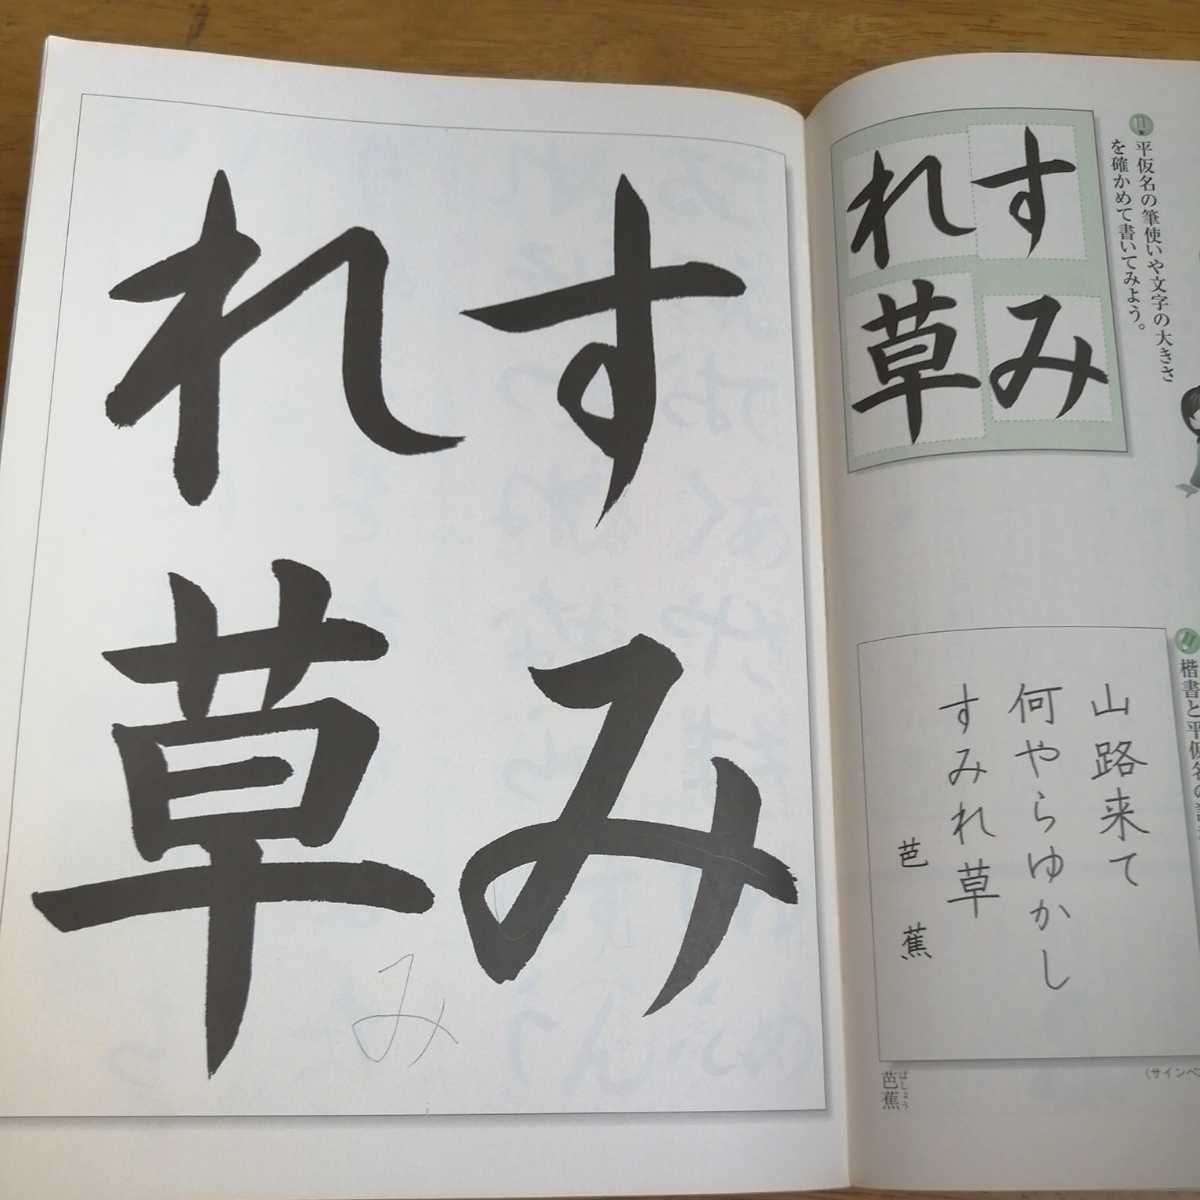 平仮名の筆使いや文字の大きさ
を確かめて書いてみよう。
すみ
れ草
楷書と平仮名の
山路来て
何やらゆかし
すみれ草
芭蕉
ばしょう
芭蕉
(サインペ
すみ
れ草
み